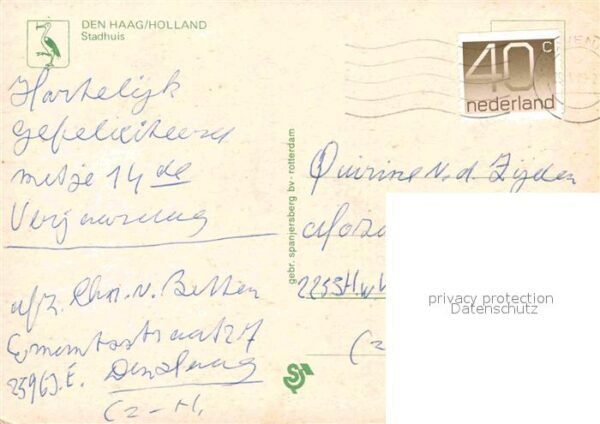 DEN HAAG/HOLLAND
Stadhuis
Hartelijk
gefeliciteerd
met je 14de
Verjaardag
afz. Chr. v. Betten
2596J.E. Den Haag
(Z-H.
gebr. spanjersberg bv - rotterdam
40c
nederland
Quirine v. d. Zijden
2255H
(Z
privacy protection
Datenschutz